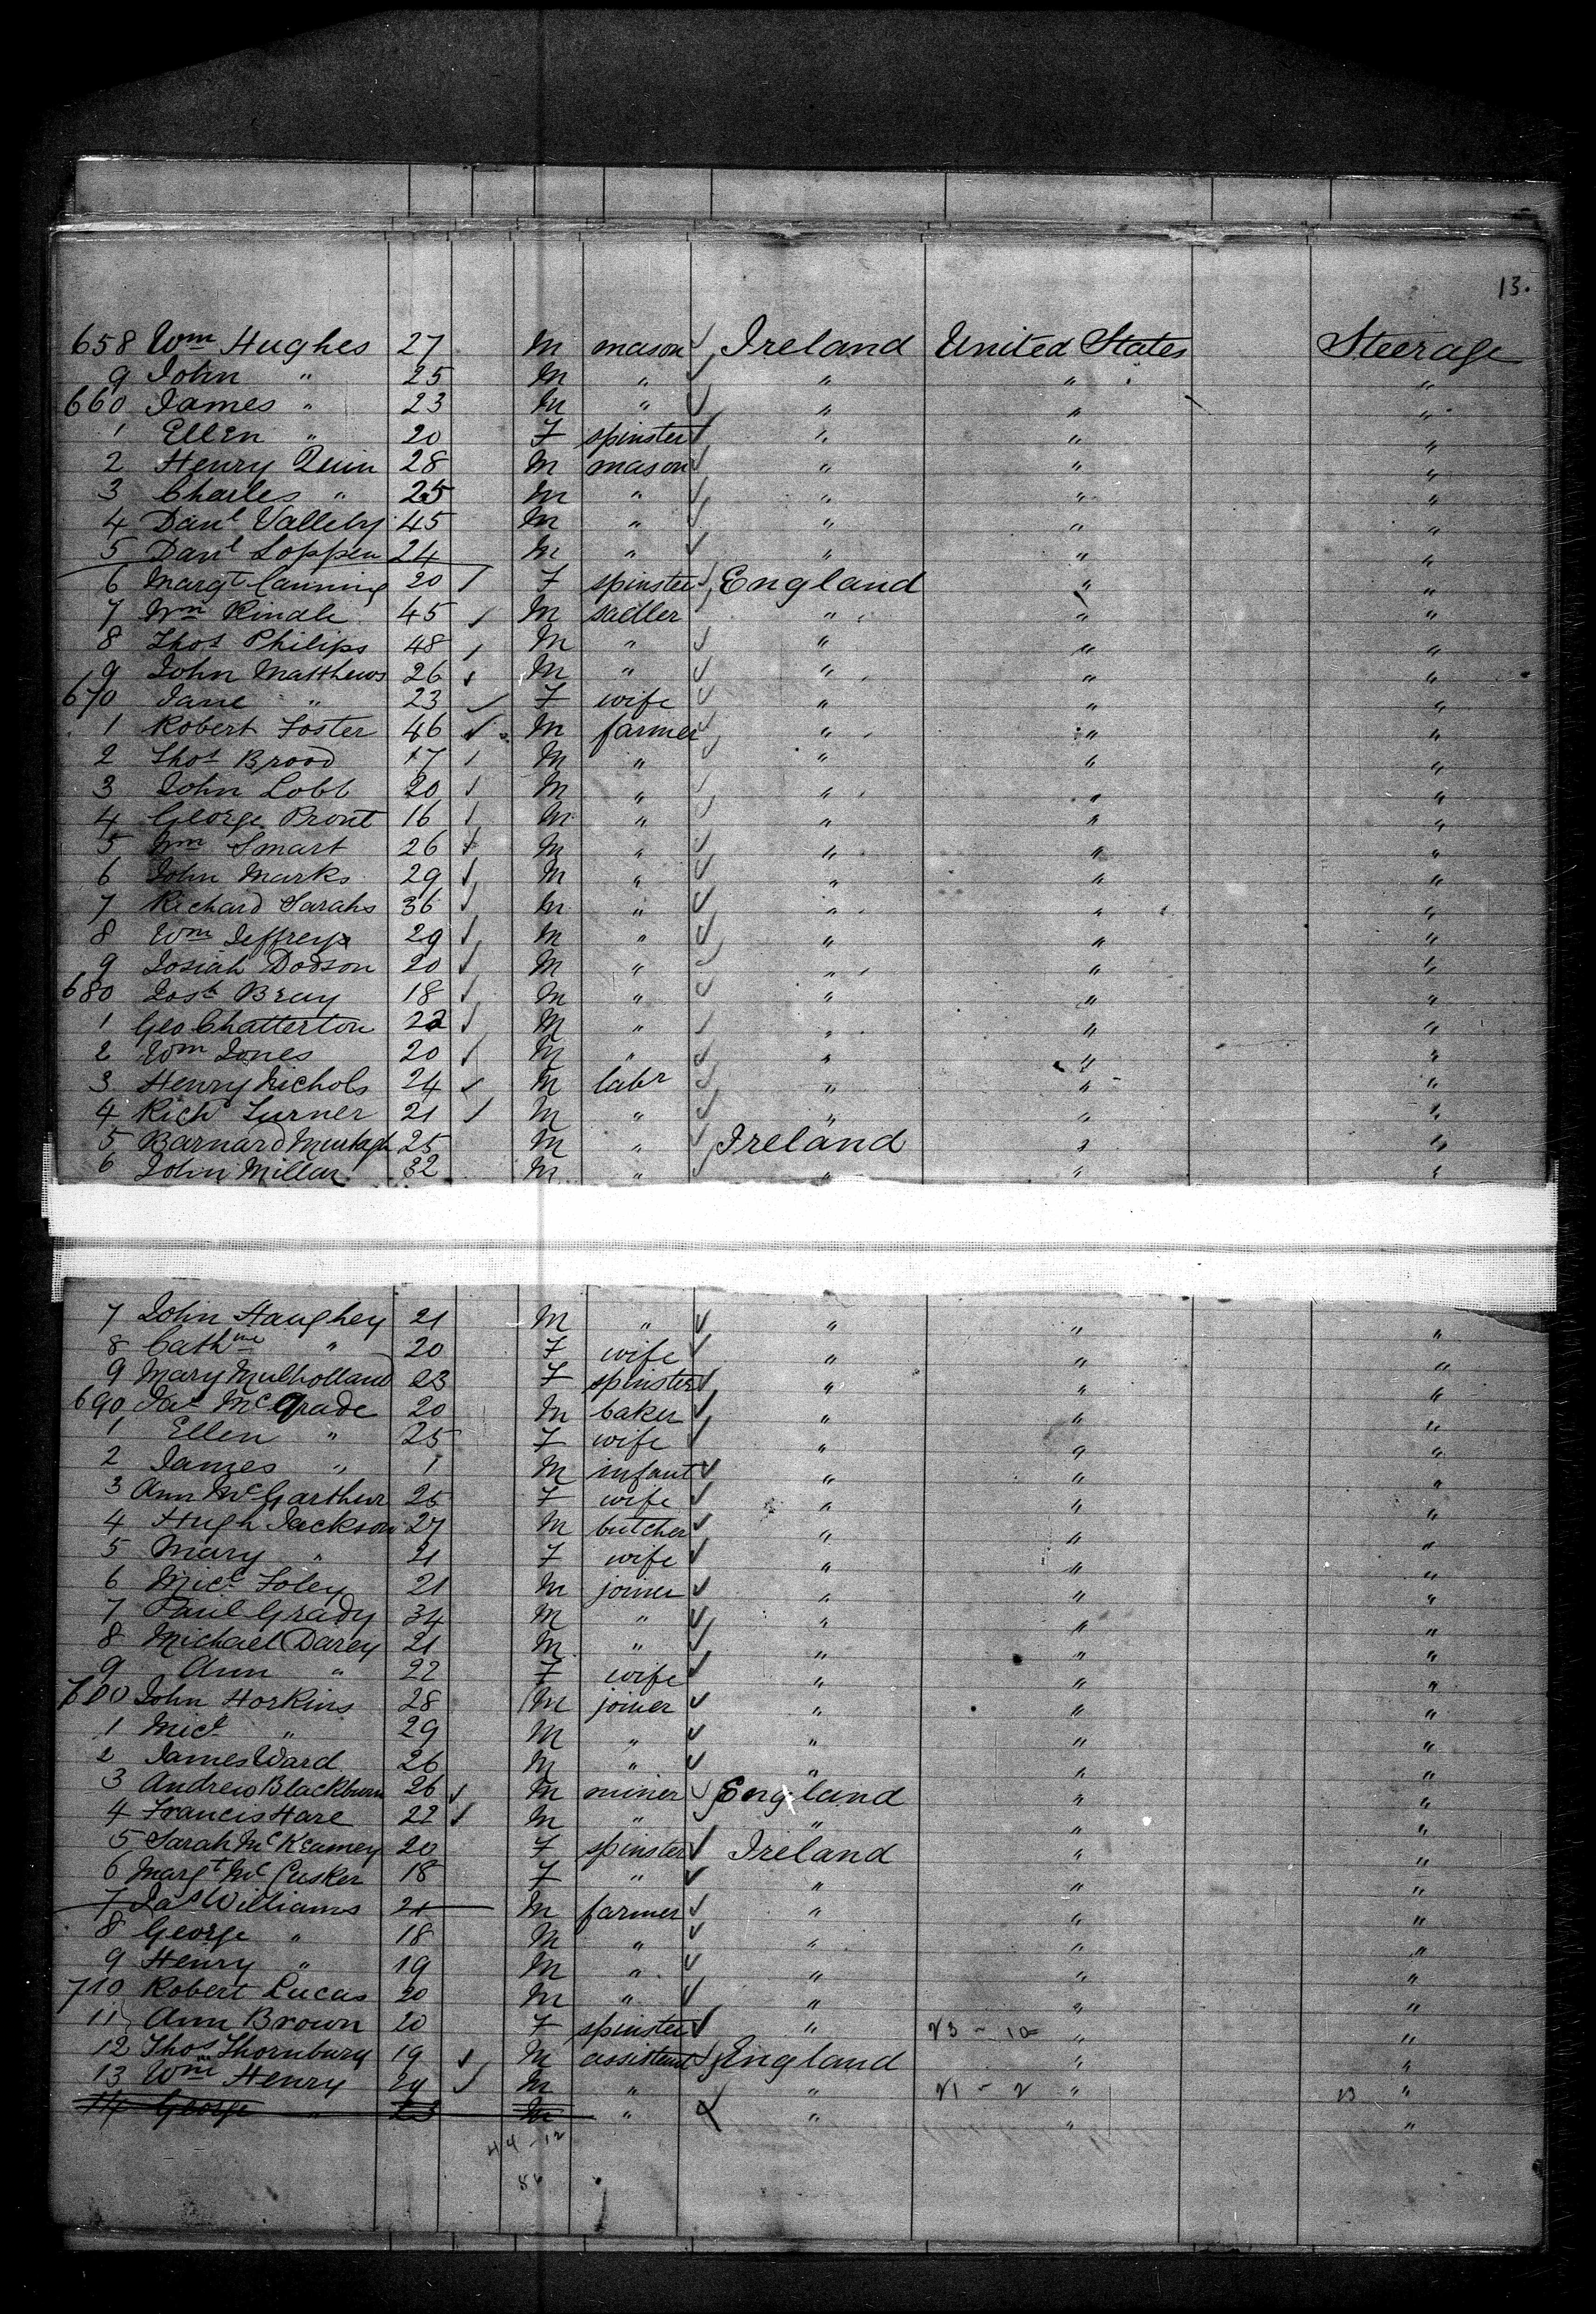 13.
658 Wm Hughes 27 M mason Ireland United States Steerage
9 John " 25 M " " " "
660 James " 23 M " " " "
1 Ellen " 20 F spinster " " "
2 Henry Quin 28 M mason " " "
3 Charles " 25 M " " " "
4 Danl Valleby 45 M " " " "
5 Danl Loppen 24 M " " " "
6 Margt Canning 20 F spinster England " "
7 Wm Rindle 45 M sadler " " "
8 Thos Philips 48 M " " " "
9 John Matthews 26 M " " " "
670 Jane " 23 F wife " " "
1 Robert Foster 46 M farmer " " "
2 Thos Brood 17 M " " " "
3 John Lobb 20 M " " " "
4 George Prout 16 M " " " "
5 Wm Smart 26 M " " " "
6 John Marks 29 M " " " "
7 Richard Sarahs 36 M " " " "
8 Wm Jeffreys 29 M " " " "
9 Josiah Dodson 20 M " " " "
680 Josh Bray 18 M " " " "
1 Geo Chatterton 22 M " " " "
2 Wm Jones 20 M " " " "
3 Henry Nichols 24 M labr " " "
4 Richd Turner 21 M " " " "
5 Barnard Murtagh 25 M " Ireland " "
6 John Millar 32 M " " " "
7 John Haughey 21 M " " " "
8 Cathne " 20 F wife " " "
9 Mary Mulholland 23 F spinster " " "
690 Jas McGrade 20 M baker " " "
1 Ellen " 25 F wife " " "
2 James " 1 M infant " " "
3 Ann McGarthur 25 F wife " " "
4 Hugh Jackson 27 M butcher " " "
5 Mary " 21 F wife " " "
6 Micl Foley 21 M joiner " " "
7 Paul Grady 34 M " " " "
8 Michael Darey 21 M " " " "
9 Ann " 22 F wife " " "
700 John Horkins 28 M joiner " " "
1 Micl " 29 M " " " "
2 James Ward 26 M " " " "
3 Andrew Blackburn 26 M miner England " "
4 Francis Hare 22 M " " " "
5 Sarah McKeamey 20 F spinster Ireland " "
6 Margt McCusker 18 F " " " "
7 Jas Williams 21 M farmer " " "
8 George " 18 M " " " "
9 Henry " 19 M " " " "
710 Robert Lucas 20 M " " " "
11 Ann Brown 20 F spinster " 23 - 10 " "
12 Thos Thornbury 19 M assistant England " "
13 Wm Henry 29 M " " 21 - 2 " 13 "
14 George " 23 M " " " "
44 - 12
86